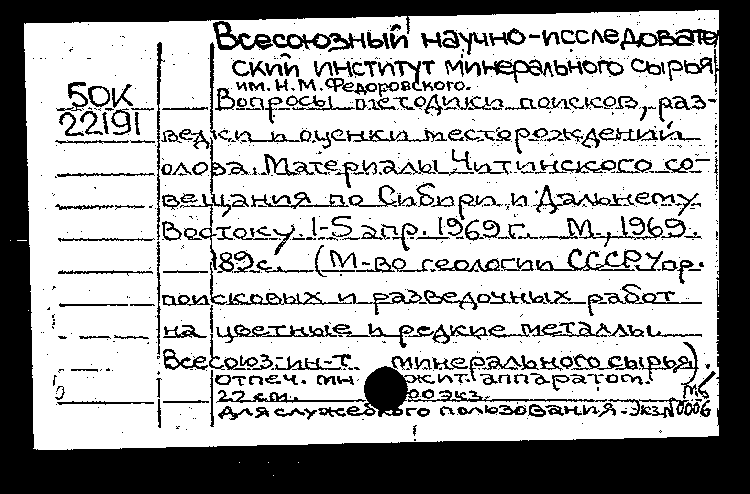 Всесоюзный научно-исследовате
ский институт минерального сырья
им. Н.М. Федоровского.
50К
22191
Вопросы методики поисков, раз-
ведки и оценки месторождений
олова. Материалы Читинского со-
вещания по Сибири и Дальнему
Востоку. 1-5 апр. 1969 г. М., 1969.
189 с. (М-во геологии СССР. Упр.
поисковых и разведочных работ
на цветные и редкие металлы.
Всесоюз. ин-т. минерального сырья).
отпеч. мн жит. аппаратом.
22 см. 00 экз.
Для служебного пользования. Экз. N 0006